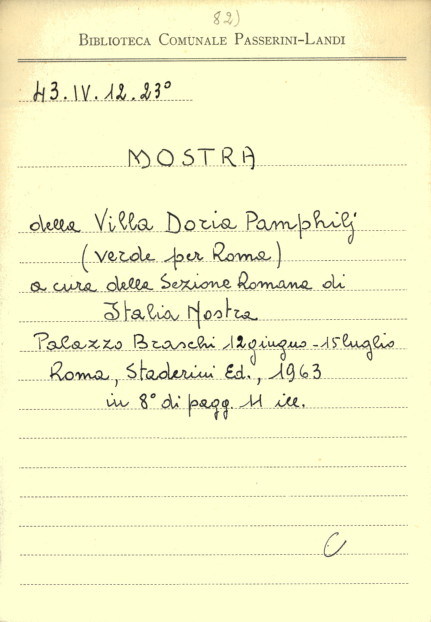 82)
BIBLIOTECA COMUNALE PASSERINI-LANDI
43.IV.12.23°
MOSTRA
della Villa Doria Pamphilj
(verde per Roma)
a cura della Sezione Romana di
Italia Nostra
Palazzo Braschi 12 giugno - 15 luglio
Roma, Staderini Ed., 1963
in 8° di pagg. 11 ill.
C